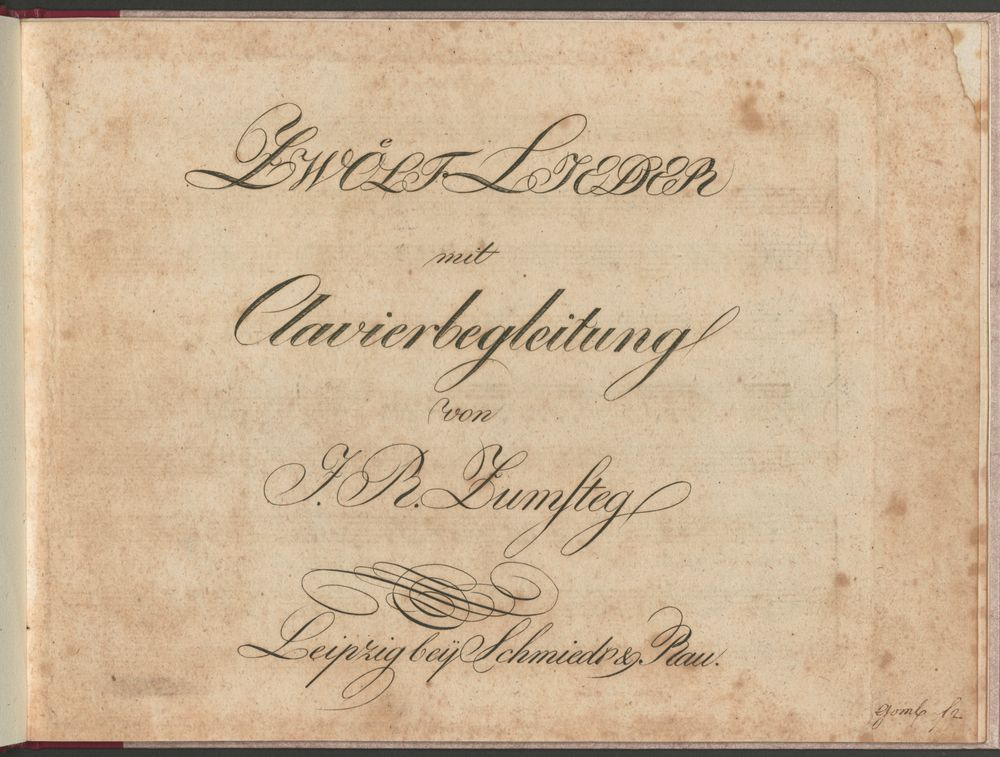 ZWÖLF LIEDER
mit
Clavierbegleitung
von
J. R. Zumſteg
Leipzig beÿ Schmiedt & Rau.